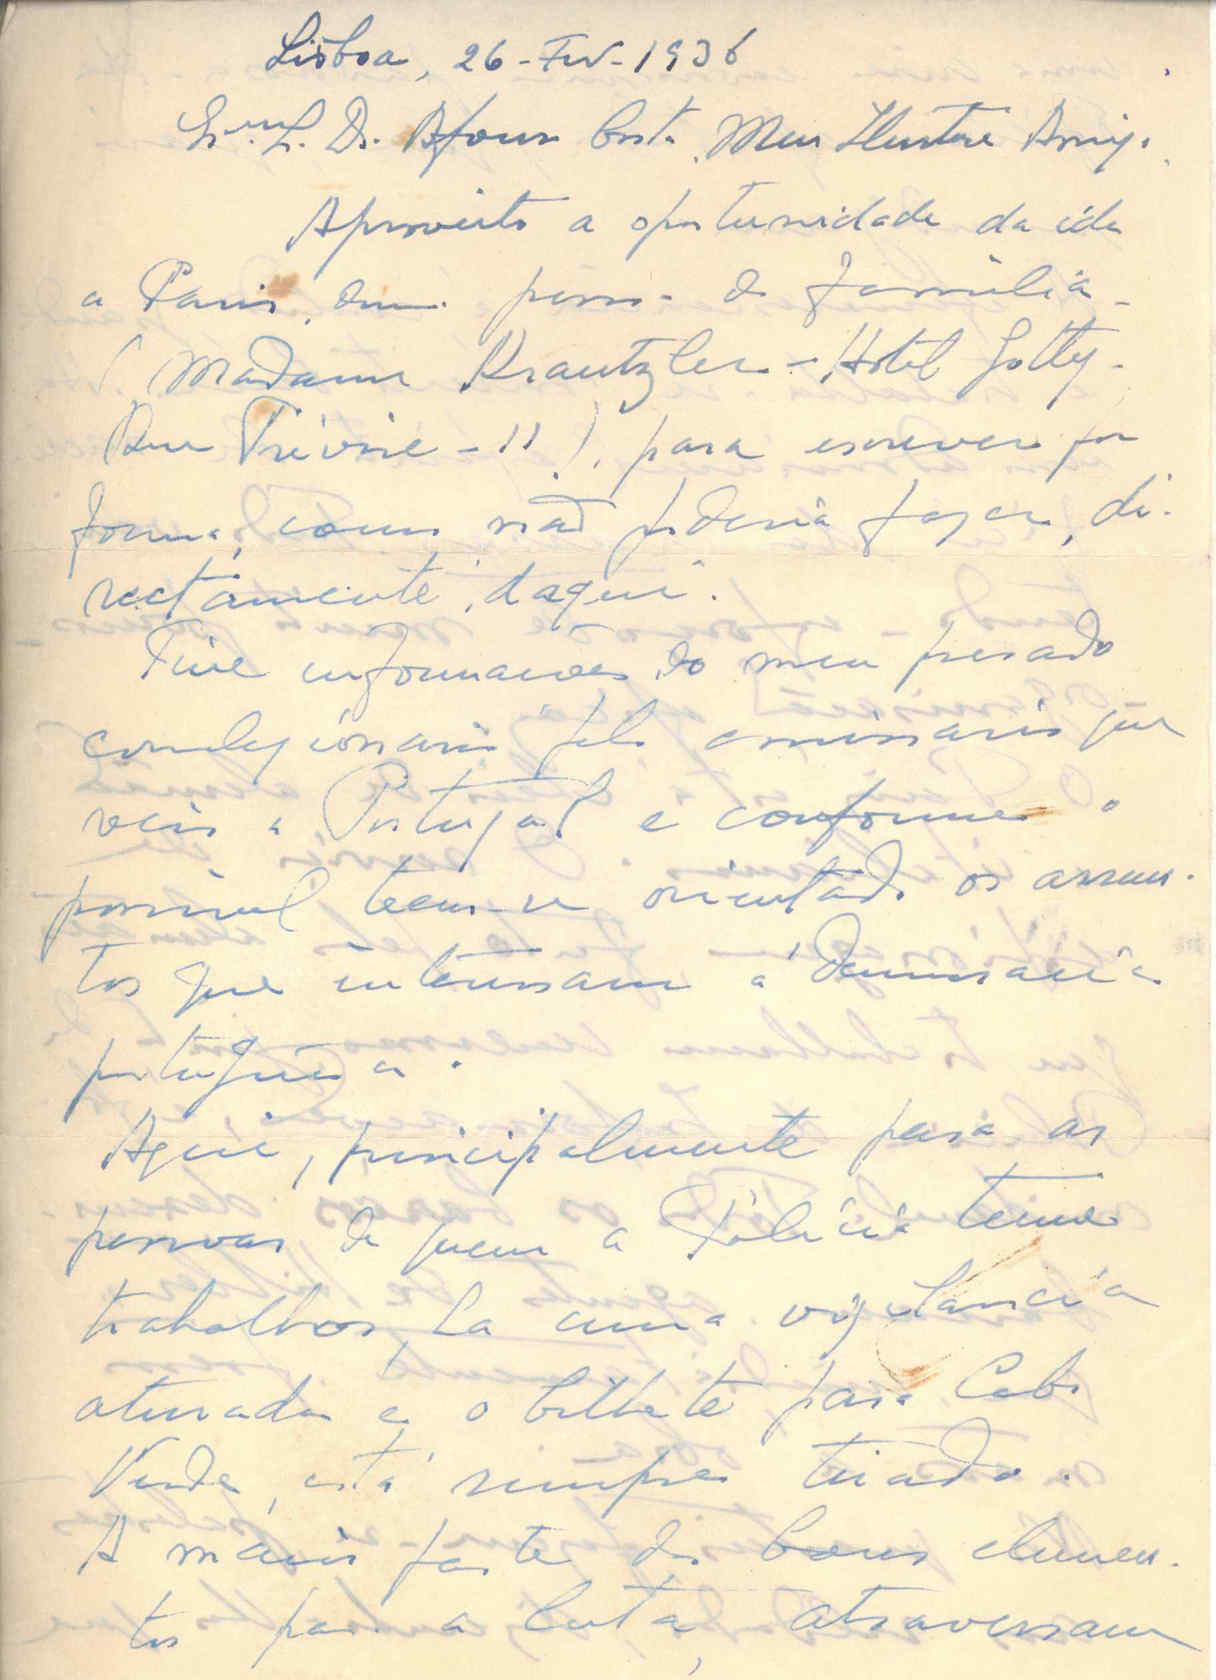 Lisboa, 26-Fev-1936
Ex.mo S. Dr. Afonso Costa. Meu Ilustre Amigo.
Aproveito a oportunidade da ida
a Paris, duma pessoa de família -
(Madame Krautzler - Hotel
Rue Trévise - 11), para escrever por
forma, como não poderia fazer, di-
rectamente, daqui.
Tive informações do meu presado
correlegionario pelo emissario que
veio a Portugal e conforme o
possivel teem-se orientado os assun-
tos que interessam á Democracia
portuguêsa.
Aqui, principalmente para as
pessoas de quem a Policia teme
trabalhos, ha uma vigilancia
aturada e o bilhete para Cabo
Verde, está sempre tirado.
A maior parte dos bons elemen-
tos para a luta, atravessam